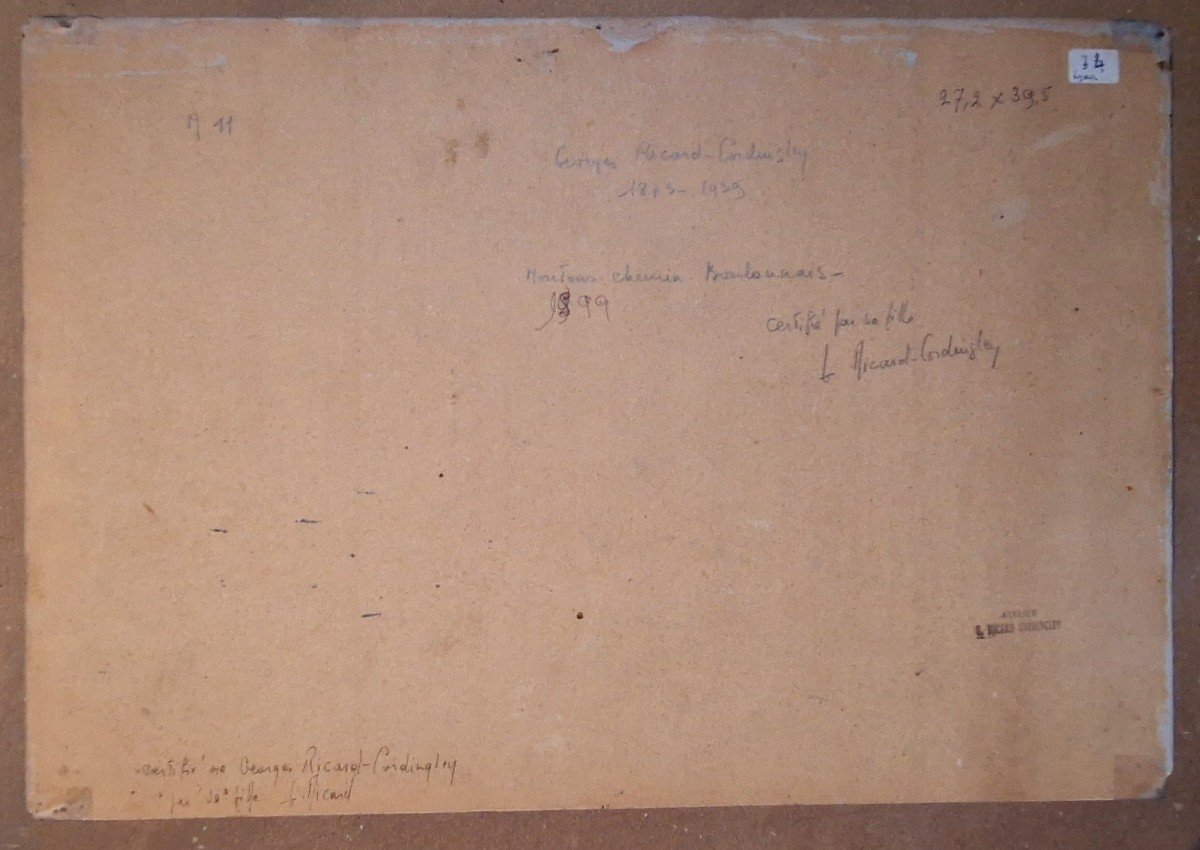 34
Lyon
27,2 x 39,5
M 11
Georges Ricard-Cordingley
1873-1939
Moutons chemin Boulonnais-
1899
certifié par sa fille
f Ricard-Cordingley
ATELIER
G. RICARD-CORDINGLEY
certifié de Georges Ricard-Cordingley
par sa fille f Ricard